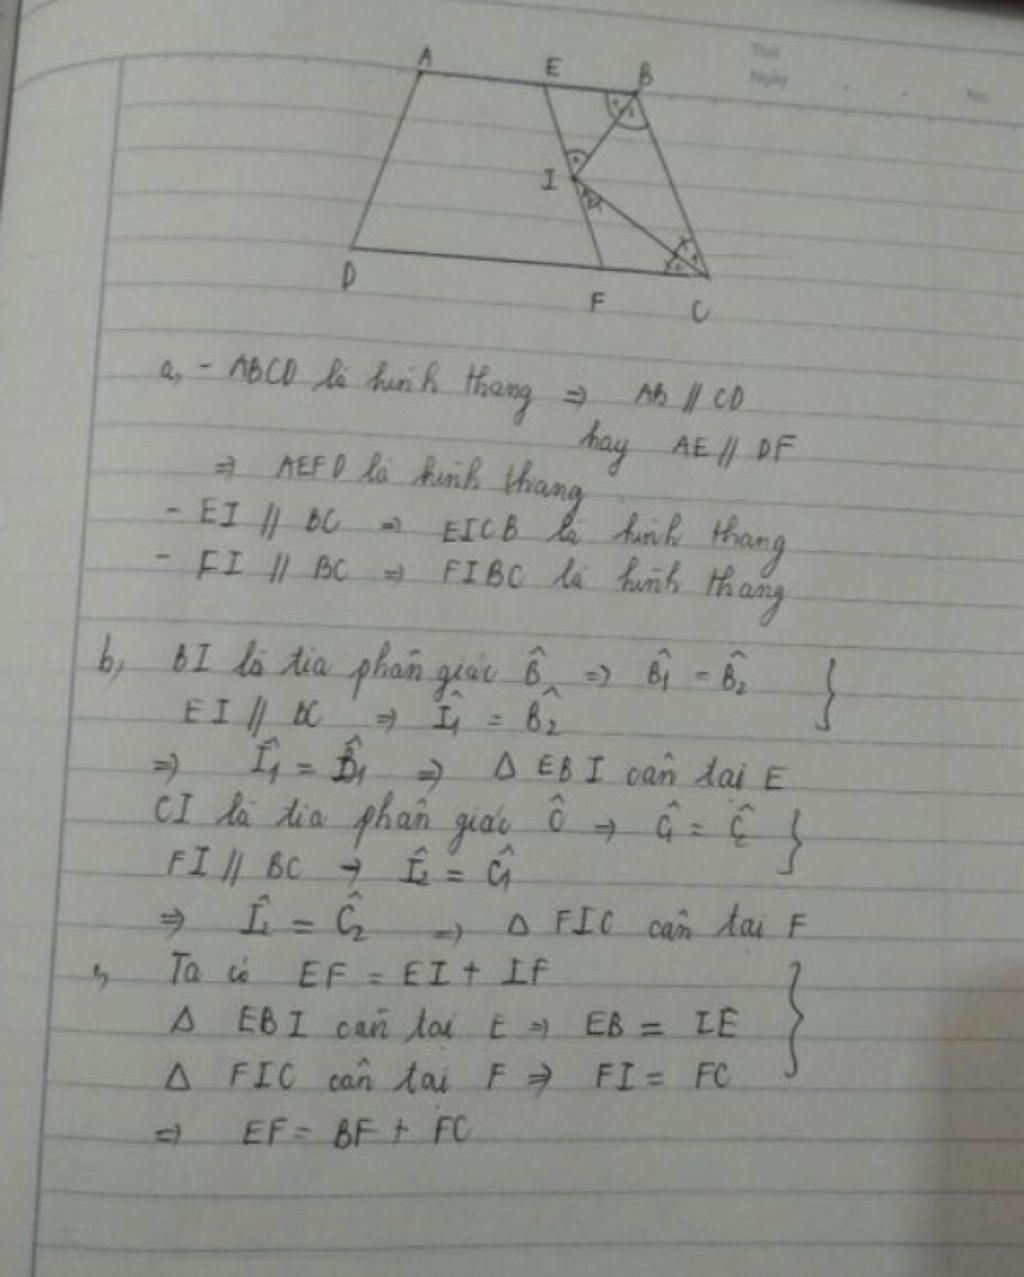 Thứ
Ngày
No.
A E B
I
D F C
a, - ABCD là hình thang => AB // CD
hay AE // DF
=> AEFD là hình thang
- EI // BC => EICB là hình thang
- FI // BC => FIBC là hình thang
b, BI là tia phân giác B̂ => B̂1 = B̂2 }
EI // BC => Î1 = B̂2
=> Î1 = B̂1 => Δ EBI cân tại E
CI là tia phân giác Ĉ => Ĉ1 = Ĉ2 }
FI // BC → Î2 = Ĉ1
=> Î2 = Ĉ2 => Δ FIC cân tại F
Ta có EF = EI + IF }
Δ EBI cân tại E => EB = IE
Δ FIC cân tại F => FI = FC
=> EF = BF + FC